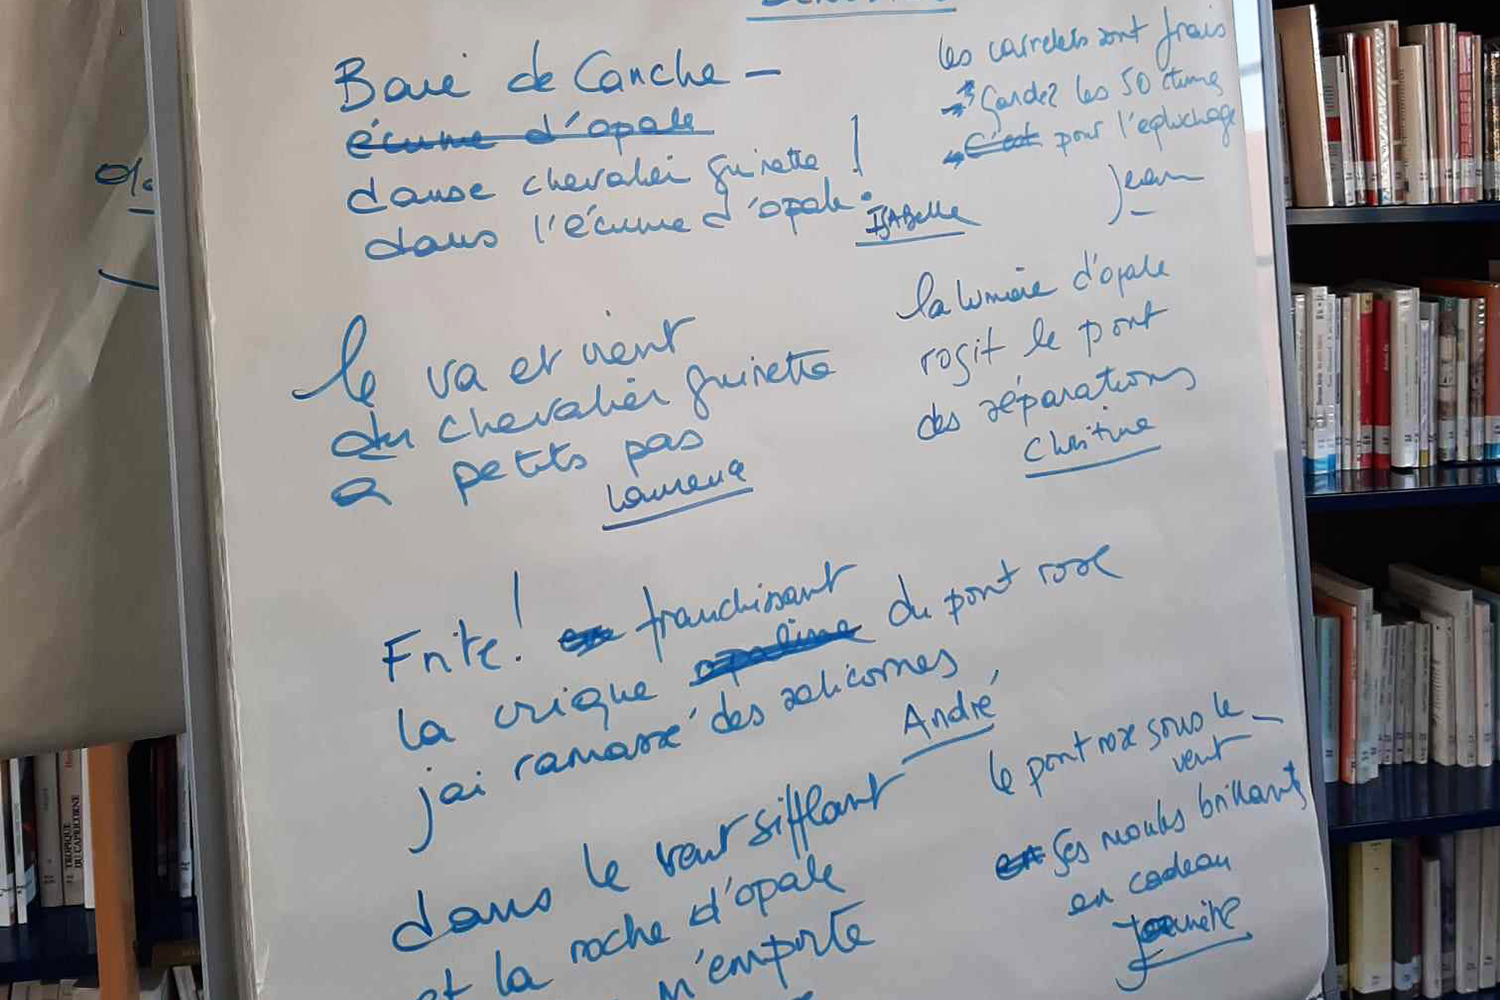 Baie de Canche –
écume d'opale
danse chevalier guinette !
dans l'écume d'opale.
ISABELLE
les carrelets sont frais
Gardez les 50 ctimes
C'est pour l'epluchage
Jean
le va et vient
du chevalier guinette
a petits pas
Laurence
la lumière d'opale
rosit le pont
des séparations
Christine
Frite ! en franchissant
la crique opaline du pont rose
j'ai ramassé des salicornes
André
dans le vent sifflant
et la roche d'opale
m'emporte
le pont rose sous le
vent
Ses moules brillants
en cadeau
TROPIQUE
DU CAPRICORNE